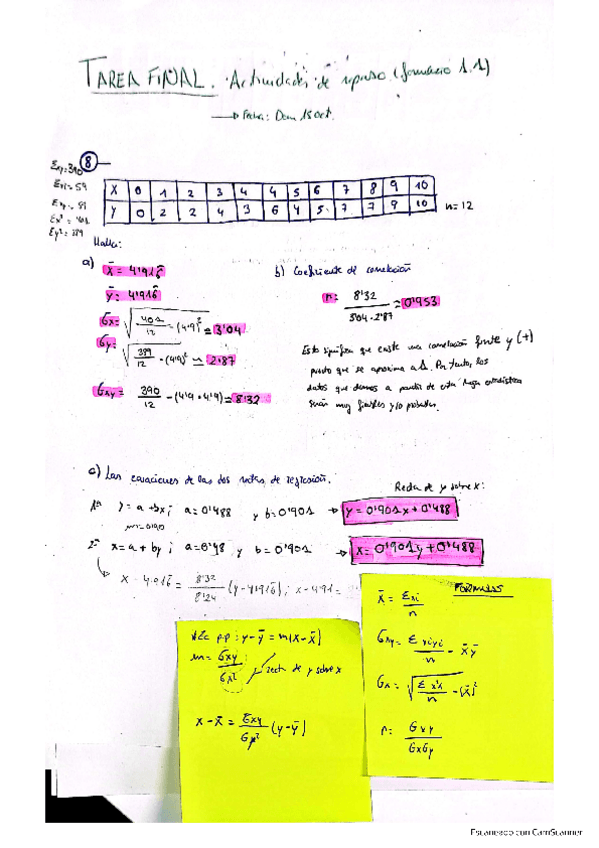 TAREA FINAL. Actividades de repaso (formulario 1.1)
→ Fecha: Dom 15 Oct.
8
Σxy=390
Σxi=59
Σy=59
Σx²=401
Σy²=389
X 0 1 2 3 4 4 5 6 7 8 9 10
Y 0 2 2 4 3 6 4 5 7 7 9 10
n=12
Halla:
a) x̄ = 4'916̂
ȳ = 4'916̂
σx= √401/12 - (4'9)² = 3'04
σy= √389/12 - (4'9)² ≈ 2'87
σxy= 390/12 - (4'9 · 4'9) = 8'32
b) Coeficiente de correlación
r= 8'32 / 3'04 · 2'87 = 0'953
Esto significa que existe una correlación fuerte y (+)
puesto que se aproxima a 1. Por tanto, los
datos que demos a partir de esta
serán muy fiables y/o probables.
c) Las ecuaciones de las dos rectas de regresión.
Recta de y sobre x:
1ª y = a + bx; a=0'488 y b=0'901 → y = 0'901x + 0'488
2ª x = a + by; a=0'48 y b=0'901 → x = 0'901y + 0'488
x - 4'916̂ = 8'32/8'24 (y - 4'916̂); x - 4'91=
y - ȳ = m(x - x̄)
m = σxy/σx² recta de y sobre x
x - x̄ = σxy/σy² (y - ȳ)
FORMULAS
x̄ = Σxi/n
σxy = Σxiyi/n - x̄ȳ
σx = √Σx²i/n - (x̄)²
r = σxy/σxσy
Escaneado con CamScanner